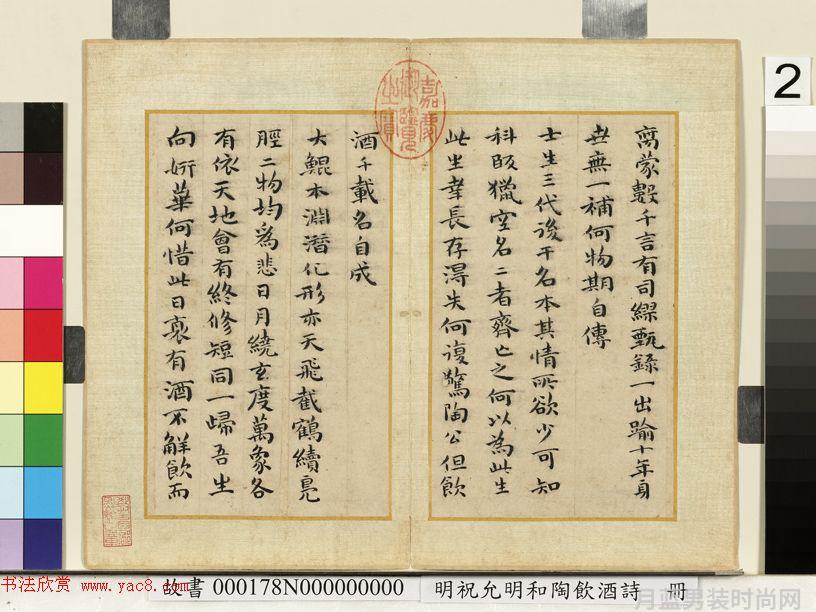 2
離蒙穀千言有司繆甄錄一出踰十年身
世無一補何物期自傳
士生三代後干名本其情所欲少可知
科段獵空名二者齊亡之何以為此生
此生幸長存得失何復驚陶公但飲
酒千載名自成
大鯤本淵潛化形亦天飛截鶴續鳧
脛二物均為悲日月繞玄度萬象各
有依天地會有終修短同一歸吾生
向妍華何惜此日衰有酒不解飲而
嘉慶御覽之寶
书法欣赏 www.yac8.com
故書 000178N000000000 明祝允明和陶飲酒詩 冊
月蓝男装时尚网